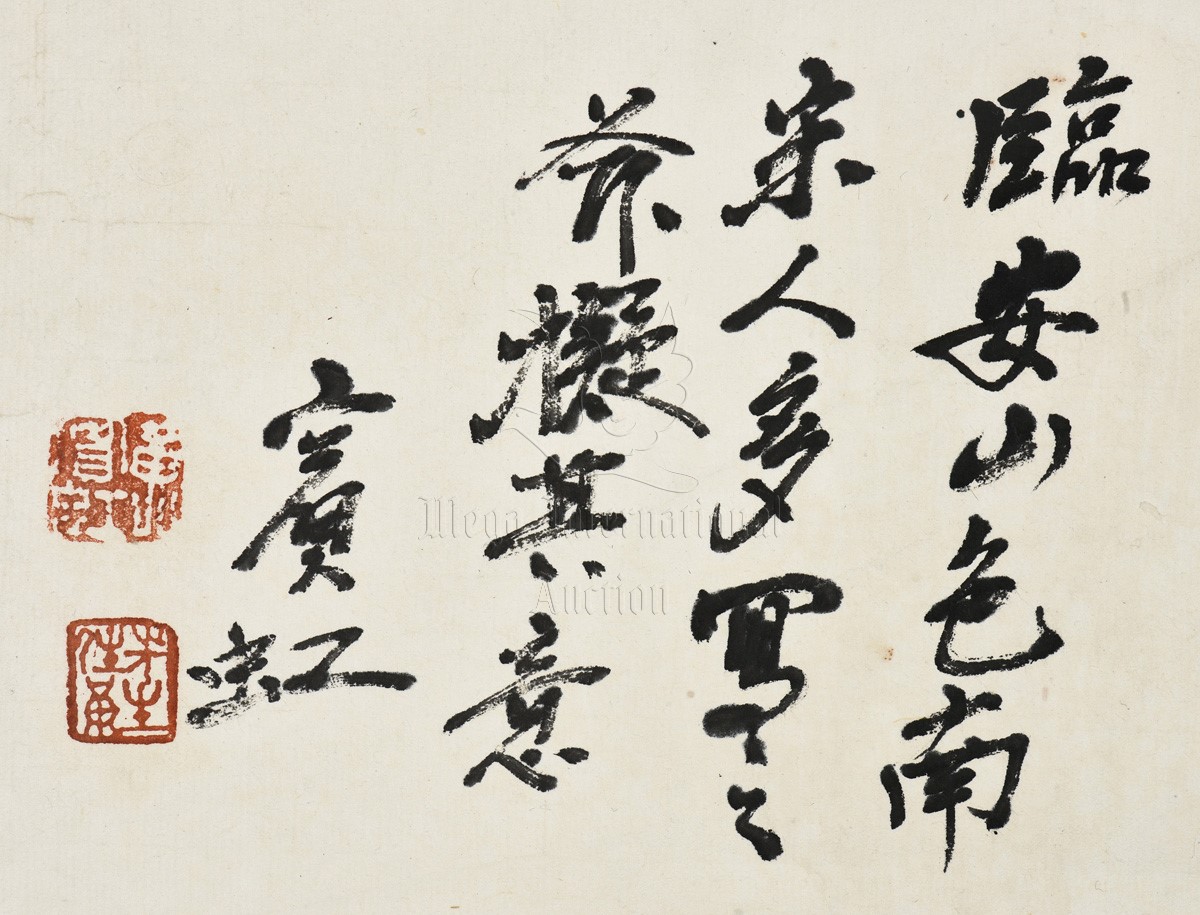 臨安山色南
宋人多寫之
茲擬其意
賓虹
Mega International
Auction